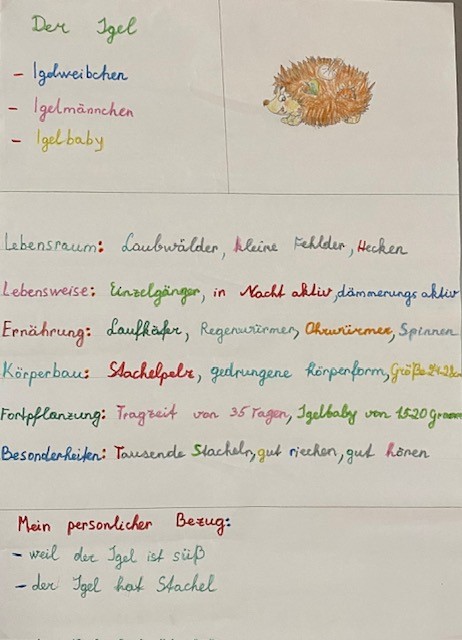 Der Igel
- Igelweibchen
- Igelmännchen
- Igelbaby
Lebensraum: Laubwälder, kleine Fehlder, Hecken
Lebensweise: Einzelgänger, in Nacht aktiv, dämmerungs aktiv
Ernährung: Laufkäfer, Regenwürmer, Ohrwürmer, Spinnen
Körperbau: Stachelpelz, gedrungene Körperform, Größe
Fortpflanzung: Tragzeit von 35 Tagen, Igelbaby von 15-20 Gramm
Besonderheiten: Tausende Stacheln, gut riechen, gut hören
Mein personlicher Bezug:
- weil der Igel ist süß
- der Igel hat Stachel